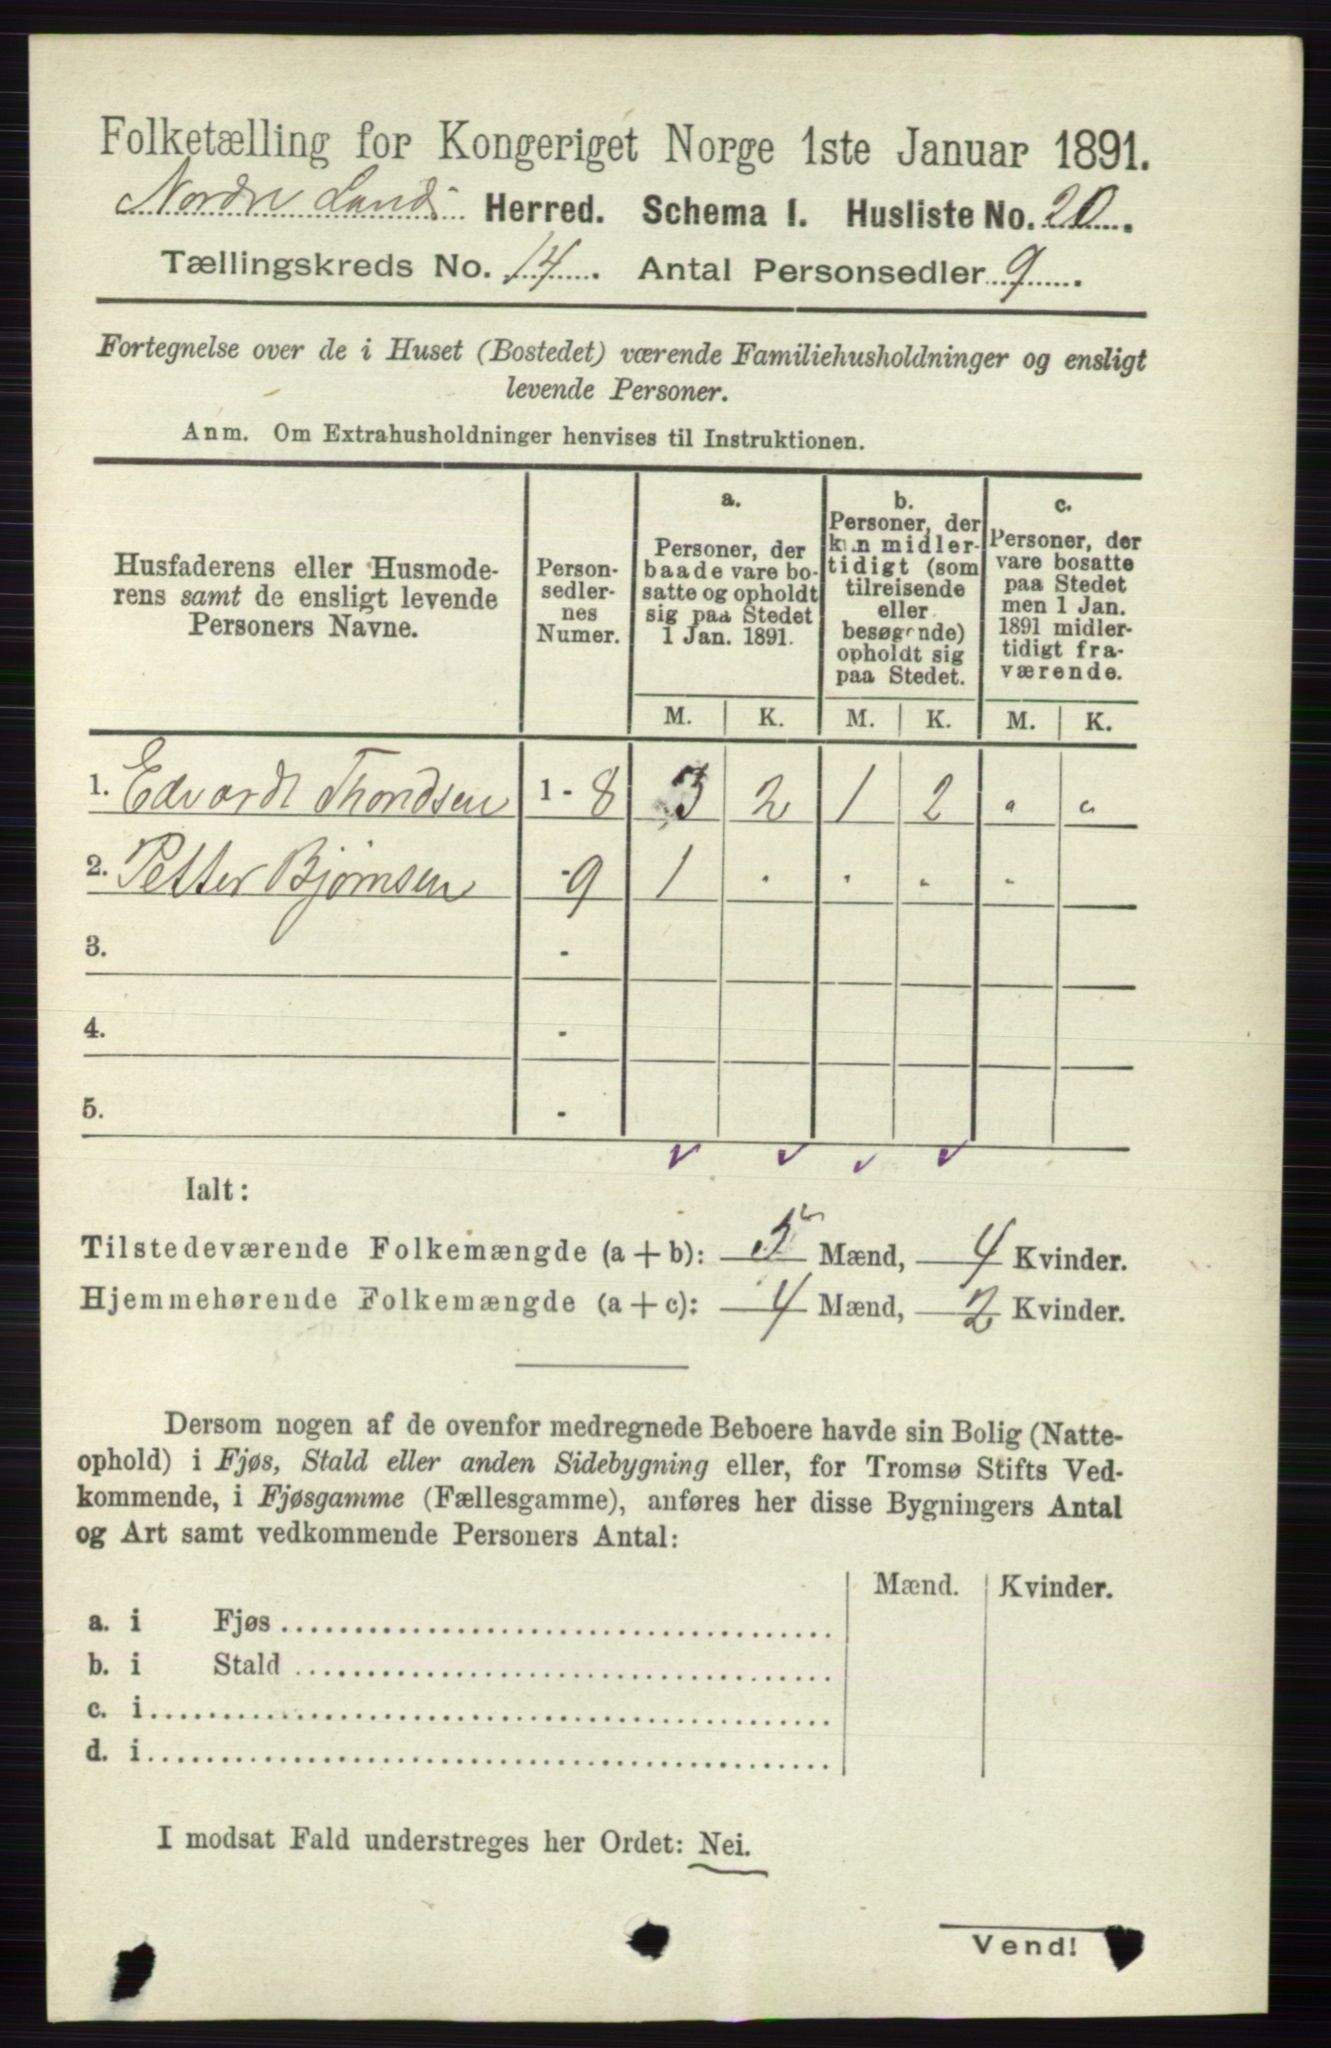 Folketælling for Kongeriget Norge 1ste Januar 1891.
Nordre Lands Herred. Schema 1. Husliste No. 20.
Tællingskreds No. 14. Antal Personsedler 9.
Fortegnelse over de i Huset (Bostedet) værende Familiehusholdninger og ensligt
levende Personer.
Anm. Om Extrahusholdninger henvises til Instruktionen.
Husfaderens eller Husmode-
rens samt de ensligt levende
Personers Navne.
Person-
sedler-
nes
Numer.
a.
Personer, der
baade vare bo-
satte og opholdt
sig paa Stedet
1 Jan. 1891.
b.
Personer, der
kun midler-
tidigt (som
tilreisende
eller
besøgende)
opholdt sig
paa Stedet.
c.
Personer, der
vare bosatte
paa Stedet
men 1 Jan.
1891 midler-
tidigt fra-
værende.
M. K. M. K. M. K.
1. Edvardt Thondsen 1 - 8 3 2 1 2 " "
2. Petter Bjørnsen - 9 1 . . . .
3. -
4. -
5. -
Ialt:
Tilstedeværende Folkemængde (a + b): 5 Mænd, 4 Kvinder.
Hjemmehørende Folkemængde (a + c): 4 Mænd, 2 Kvinder.
Dersom nogen af de ovenfor medregnede Beboere havde sin Bolig (Natte-
ophold) i Fjøs, Stald eller anden Sidebygning eller, for Tromsø Stifts Ved-
kommende, i Fjøsgamme (Fællesgamme), anføres her disse Bygningers Antal
og Art samt vedkommende Personers Antal:
Mænd. Kvinder.
a. i Fjøs
b. i Stald
c. i
d. i
I modsat Fald understreges her Ordet: Nei.
Vend!